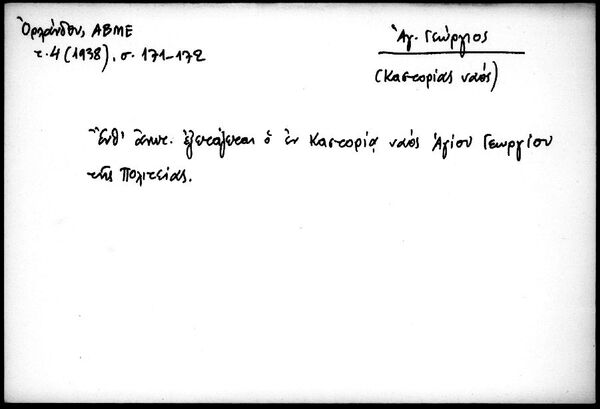 Ὀρλάνδου, ΑΒΜΕ
τ. 4 (1938), σ. 171-172
Ἁγ. Γεώργιος
(Καστορίας ναός)
Ἔνθ' ἀνωτ. ἐξετάζεται ὁ ἐν Καστορίᾳ ναός Ἁγίου Γεωργίου
τῆς Πολιτείας.